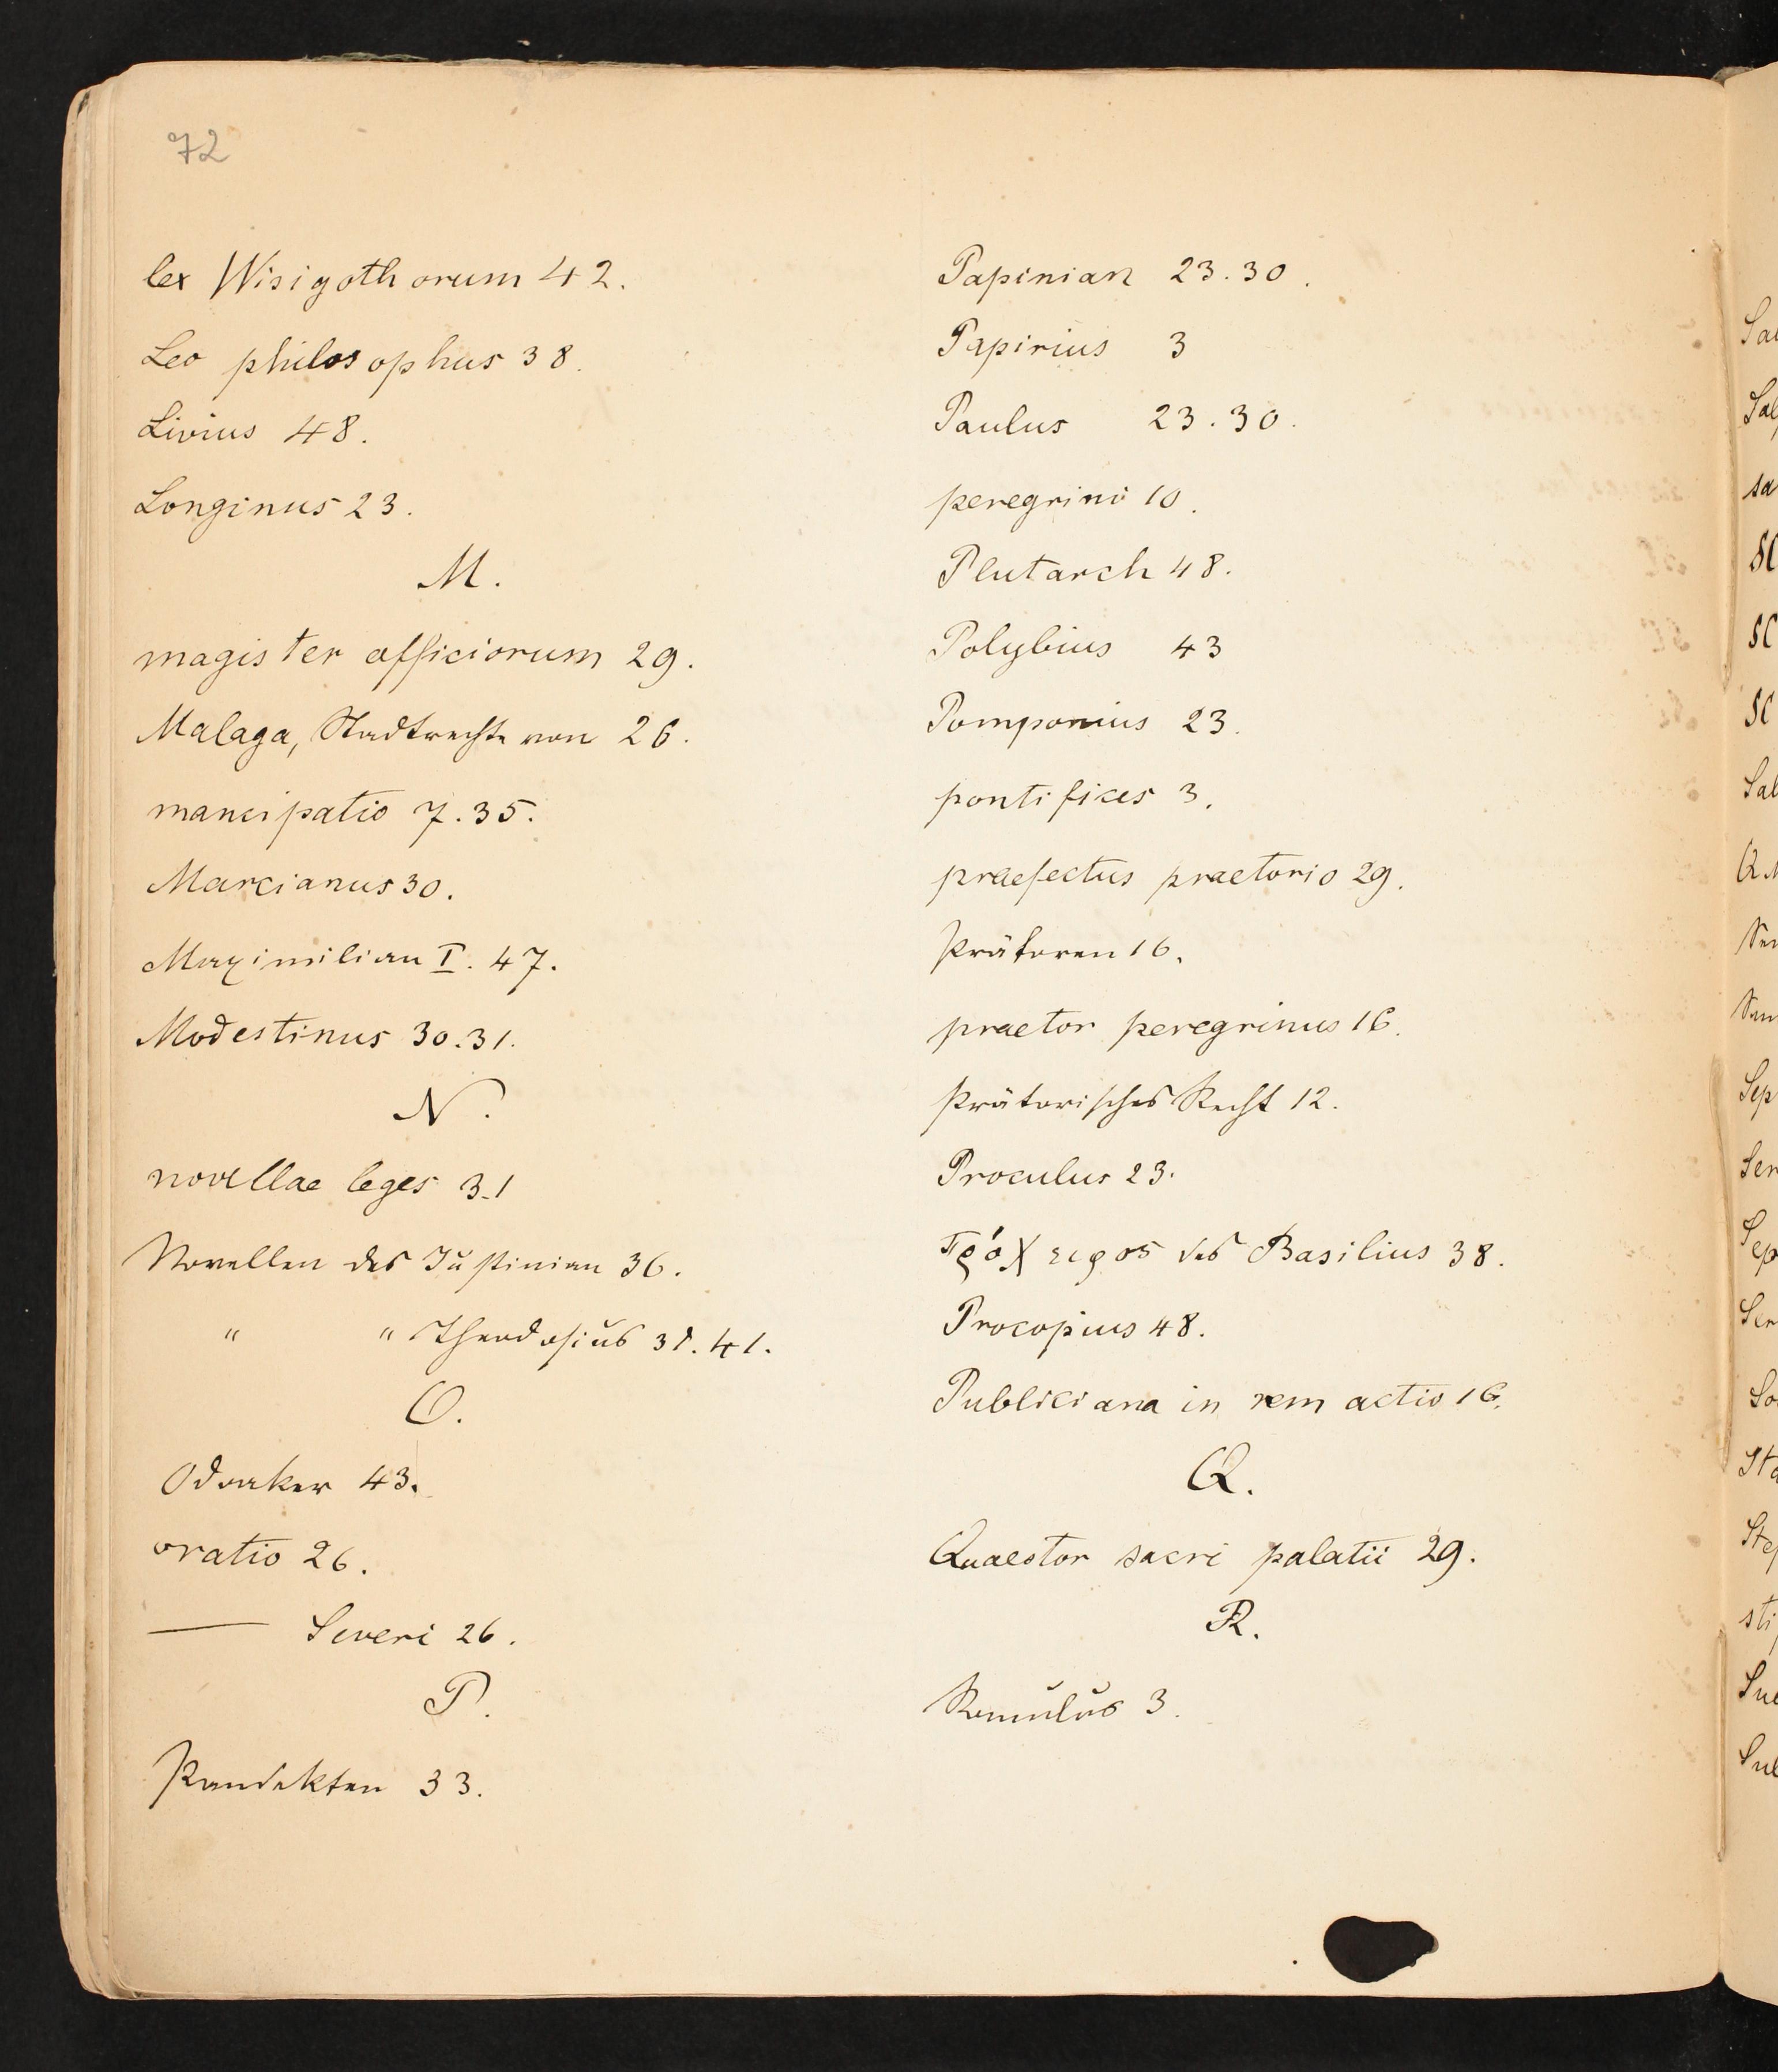 72
lex Wisigothorum 42.
Leo philosophus 38.
Livius 48.
Longinus 23.
M.
magister officiorum 29.
Malaga, Stadtrecht von 26.
mancipatio 7. 35.
Marcianus 30.
Maximilian I. 47.
Modestinus 30. 31.
N.
novellae leges 31
Novellen des Justinian 36.
" " Theodosius 31. 41.
O.
Odoaker 43.
oratio 26.
— Severi 26.
P.
Pandekten 33.
Papinian 23. 30.
Papirius 3
Paulus 23. 30.
peregrini 10.
Plutarch 48.
Polybius 43
Pomponius 23.
pontifices 3.
praefectus praetorio 29.
Prätoren 16.
praetor peregrinus 16.
Prätorisches Recht 12.
Proculus 23.
Πρόχειρος des Basilius 38.
Procopius 48.
Publiciana in rem actio 16.
Q.
Quaestor sacri palatii 29.
R.
Romulus 3.